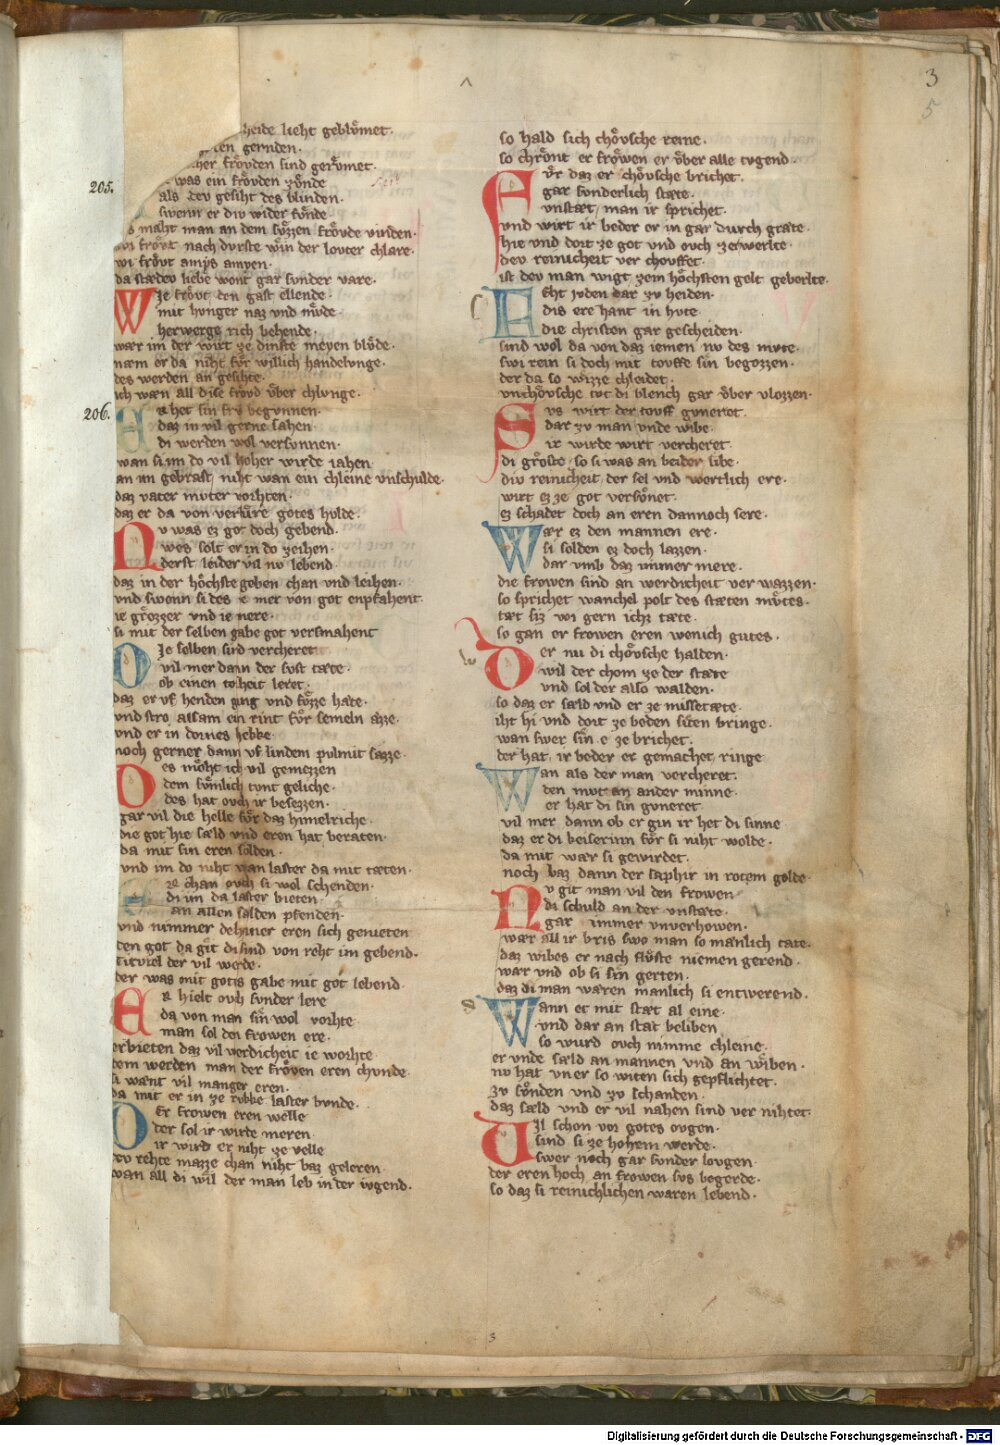 3
5
heide lieht geblůmet.
en gernden.
her frǒuden sind gerůmet.
205.
was ein frǒuden zůnde
als dev gesiht des blinden.
swenn er div wider funde
maht man an dem sůzzen frǒvde vinden.
frǒvt nach durste win der louter chlare.
wi frǒvt amys amyen.
da stædev liebe wont gar sunder vare.
Wie frǒvt den gast ellende.
mit hunger naz vnd mǔde.
herwerge rich behende.
wær im der wirt ze dinste meyen blǔde.
næm er da niht fǔr willich handelvnge.
des werden an gesihte.
ich wæn all dise frǒvd vber chlvnge.
206.
Er het sin frv begvnnen.
daz in vil gerne sahen.
di werden wol versvnnen.
wan si im do vil hoher wirde iahen
an im gebrast niht wan ein chleine vnschulde.
daz vater mvter vorhten.
daz er da von verlůre gotes hulde.
Nv was ez got doch gebend.
wes solt er in do zeihen.
derst leider vil nv lebend
daz in der hǒchste geben chan vnd leihen.
vnd swenn si des e mer von got enpfahent.
ie grǒzzer vnd ie mere.
si mit der selben gabe got versmahent
Die selben sint vercheret
vil mer dann der svst tæte.
ob einen toheit leret.
daz er vf henden ging vnd fǔzze hate.
vnd stro alsam ein rint fǔr semeln azze.
vnd er in dornes hebbe.
noch gerner dann vf lindem pulmit sazze.
Des mǒht ich vil gemezzen
dem sǔmlich tvnt geliche.
des hat ovch ir besezzen.
gar vil die helle fǔr daz himelriche.
die got hie sæld vnd eren hat beraten.
da mit sin eren solden.
vnd im do niht wan laster da mit tæten.
ze chan ovch si wol schenden.
di im da laster bieten.
an allen sælden pfenden.
vnd nimmer deheiner eren sich genieten
den got da git disind von reht im gebend.
Titvrel der vil werde.
der was mit gotis gabe mit got lebend.
Er hielt ovch sunder lere
da von man sin wol vorhte.
man sol den frowen ere.
erbieten daz vil werdicheit ie worhte.
dem werden man der frǒven eren chvnde.
si wænt vil manger eren.
da mit er in ze rvbbe laster bunde.
Der frowen eren welle
der sol ir wirde meren.
ir wird er niht ze velle
dev rehte mazze chan niht baz geleren.
wan all di wil der man leb in der ivgend.
so hald sich chǒvsche reine.
so chrǒnt er frǒwen er vber alle tvgend.
Fǔr daz er chǒvsche brichet.
gar sunderlich stæte.
vnstæt, man ir sprichet.
vnd wirt ir beder er in gar durch græte.
hie vnd dort ze got vnd ovch zerwerlte.
dev reinicheit ver chovffet.
ist dev man wigt zem hǒchsten gelt geberlte.
Seht ivden dar zv heiden.
dis ere hant in hvte.
die christen gar gescheiden.
sind wol da von daz iemen nv des mvte.
swi rein si doch mit touffe sin begozzen.
der da so wizze chleidet.
vnchǒvsche tvt di blench gar vber vlozzen.
Svs wirt der touff gvneret.
dar zv man vnde wibe.
ir wirde wirt vercheret.
di grǒste so si was an beider libe.
div reinicheit der sel vnd wertlich ere.
wirt ez ze got versǒnet.
ez schadet doch an eren dannoch sere.
Wær ez den mannen ere.
si solden ez doch lazzen.
dar vmb daz immer mere.
die frowen sind an werdicheit ver wazzen.
so sprichet wanchel polt des stæten mǔtes.
tæt siz wi gern ichz tæte.
so gan er frowen eren wenich gutes.
Der nu di chǒvsche halden.
wil der chom ze der stæte
vnd sol der also walden.
so daz er sæld vnd er ze missetæte.
iht hi vnd dort ze beden siten bringe.
wan swer sin e ze brichet.
der hat ir beder er gemachet ringe
Wan als der man vercheret.
den mvt an ander minne.
er hat di sin gvneret
vil mer dann ob er gin ir het di sinne
daz er di beiserinn fǔr si niht wolde.
da mit wær si gewirdet.
noch baz dann der saphir in rotem golde.
Nv git man vil den frowen
di schuld an der vnstæte.
gar immer vnverhowen.
wær all ir bris swo man so mænlich tæte.
daz wibes er nach flvste niemen gerend.
wær vnd ob si sin gerten.
daz di man wæren manlich si entwerend.
Wann et mit stæt al eine.
vnd dar an stæt beliben
so wurd ovch nimme chleine.
er vnde sæld an mannen vnd an wiben.
nv hat vn er so witen sich gepflichtet.
zv sǔnden vnd zv schanden.
daz sæld vnd er vil nahen sind ver nihtet.
Vil schon vor gotes ovgen.
sind si ze hohem werde.
swer noch gar sunder lovgen.
der eren hoch an frowen svs begerde.
so daz si reinichlichen waren lebend.
3
Digitalisierung gefördert durch die Deutsche Forschungsgemeinschaft - DFG